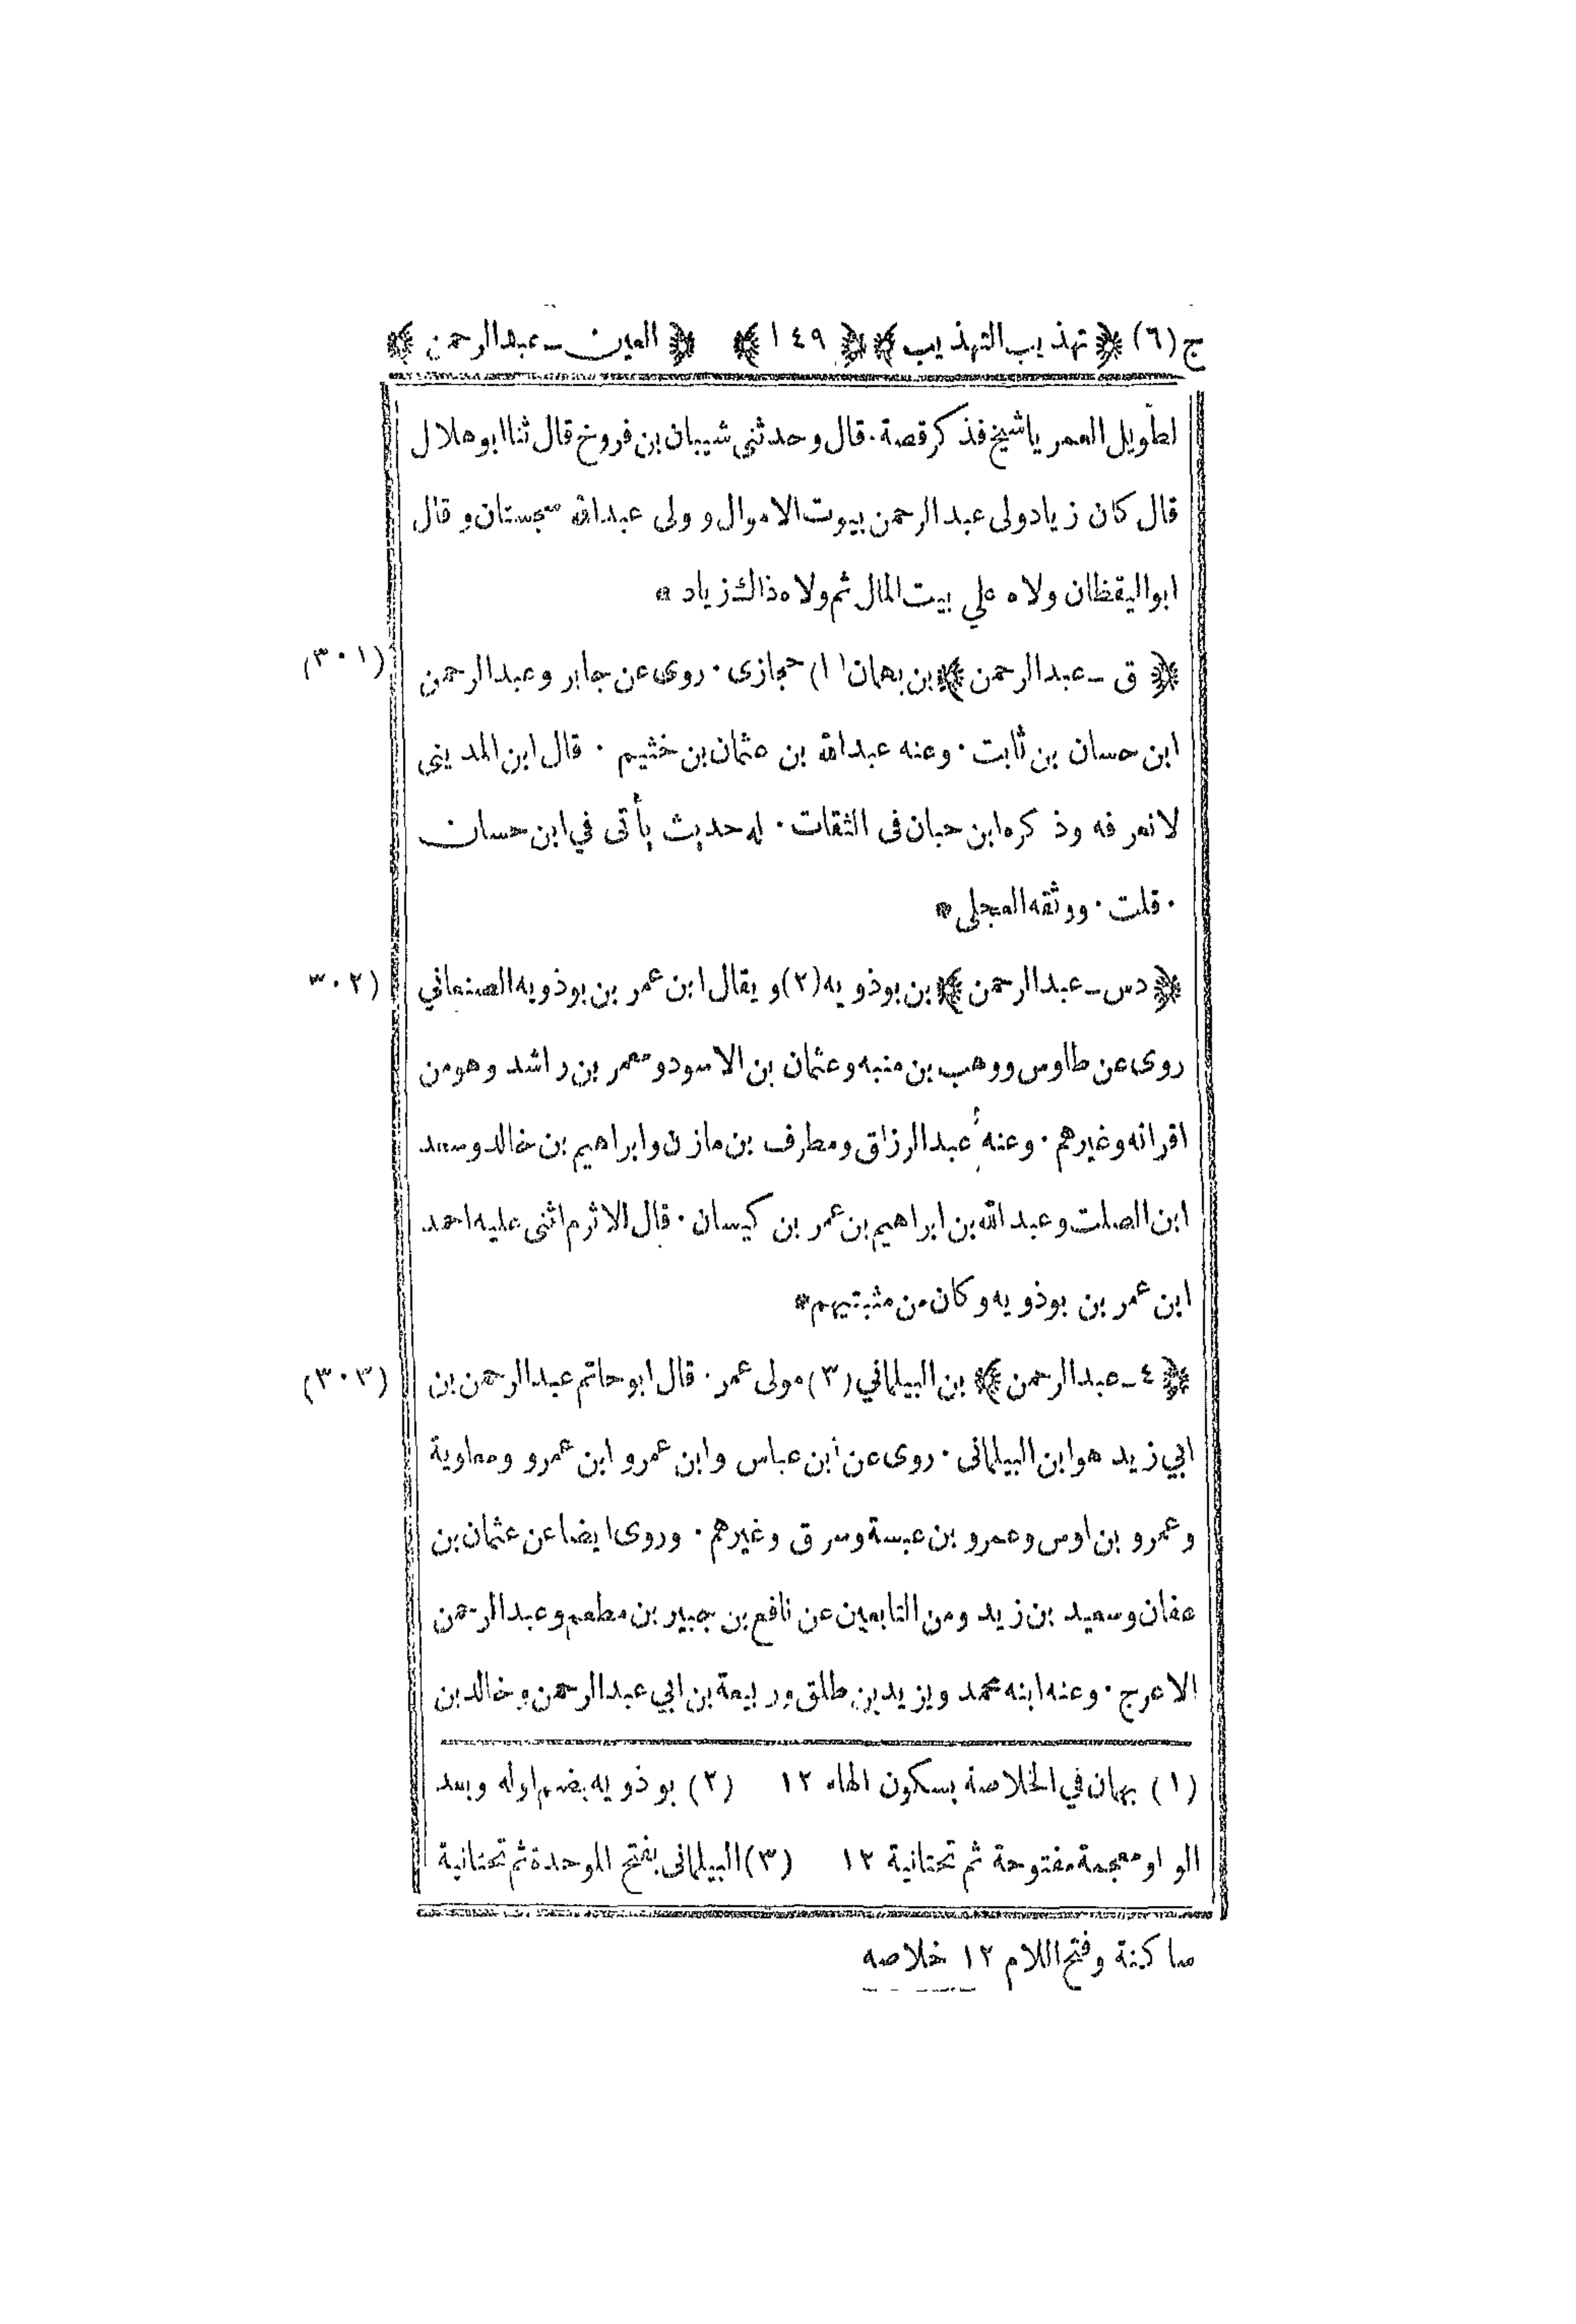 ج (٦) ﴿ تهذيب التهذيب ﴾ ﴿ ١٤٩ ﴾ ﴿ العين ـ عبدالرحمن ﴾
لطويل العمر ياشيخ فذكر قصة ٠ قال وحدثنى شيبان بن فروخ قال ثنا ابو هلال
قال كان زياد ولى عبد الرحمن بيوت الاموال وولى عبدالله سجستان وقال
ابو اليقظان ولاه علي بيت المال ثم ولاه ذاك زياد *
﴿ ق ـ عبدالرحمن ﴾ بن بهمان (١) حجازى ٠ روى عن جابر وعبدالرحمن (٣٠١)
ابن حسان بن ثابت ٠ وعنه عبدالله بن عثمان بن خثيم ٠ قال ابن المدينى
لا نعرفه وذكره ابن حبان فى الثقات ٠ له حديث يأتى في ابن حسان
٠ قلت ٠ ووثقه العجلى *
﴿ دس ـ عبدالرحمن ﴾ بن بوذويه (٢) ويقال ابن عمر بن بوذويه الصنعاني (٣٠٢
روى عن طاوس ووهب بن منبه وعثمان بن الاسود ومعمر بن راشد وهو من
اقرانه وغيرهم ٠ وعنه عبدالرزاق ومطرف بن مازن وابراهيم بن خالد وسعد
ابن الصلت وعبد الله بن ابراهيم بن عمر بن كيسان ٠ قال الاثرم اثنى عليه احمد
ابن عمر بن بوذويه وكان من مثبتيهم *
﴿ ٤ ـ عبدالرحمن ﴾ بن البيلماني (٣) مولى عمر ٠ قال ابو حاتم عبدالرحمن بن (٣٠٣)
ابي زيد هو ابن البيلمانى ٠ روى عن ابن عباس وابن عمر و ابن عمرو ومعاوية
وعمرو بن اوس وعمرو بن عبسة وسرق وغيرهم ٠ وروى ايضا عن عثمان بن
عفان وسعيد بن زيد ومن التابعين عن نافع بن جبير بن مطعم وعبدالرحمن
الاعرج ٠ وعنه ابنه محمد ويزيد بن طلق وربيعة بن ابي عبدالرحمن وخالد بن
(١) بهمان في الخلاصة بسكون الهاء ١٢ (٢) بوذويه بضم اوله وبعد
الواو معجمة مفتوحة ثم تحتانية ١٢ (٣) البيلمانى بفتح الموحدة ثم تحتانية
ساكنة وفتح اللام ١٢ خلاصه